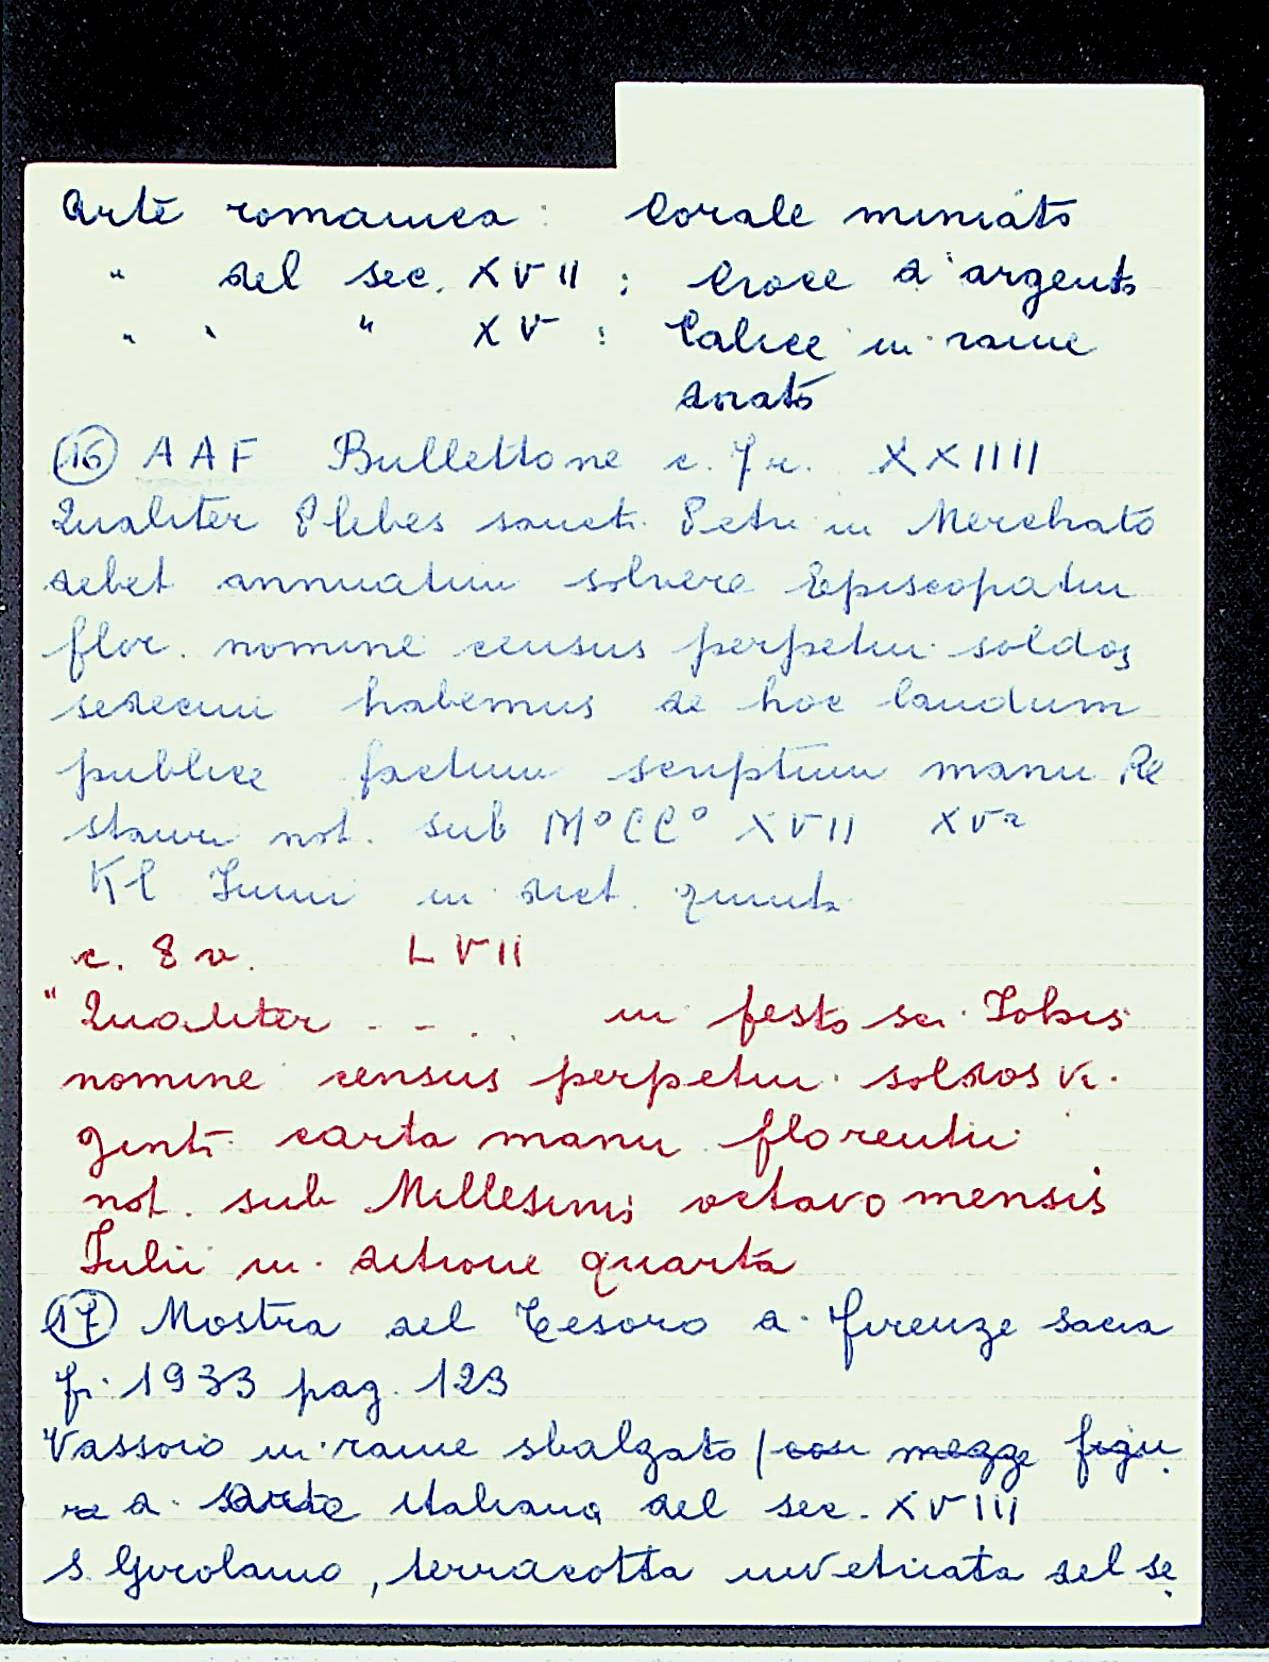 Arte romanica : Corale miniato
" del sec. XVII : Croce d'argento
" " " XV : Calice in rame
dorato
(16) AAF Bullettone c. 7 r. XXIIII
Qualiter Plebes sancti Petri in Merchato
debet annuatim solvere Episcopatui
flor. nomine census perpetui soldos
sedecim habemus de hoc laudum
publice factum scriptum manu Re
stauri not. sub M°CC° XVII XVa
Kl Iunii in dict. quinta
c. 8 v. LVII
"Qualiter - - . . in festo sci. Iohis
nomine census perpetui soldos vi.
ginti carta manu florentii
not. sub Millesimi octavo mensis
Iulii in ditione quarta
(17) Mostra del Tesoro di Firenze sacra
fi. 1933 pag. 123
Vassoio in rame sbalzato / con mezze figu
re d. arte italiana del sec. XVIII
S. Girolamo, terracotta invetriata del se